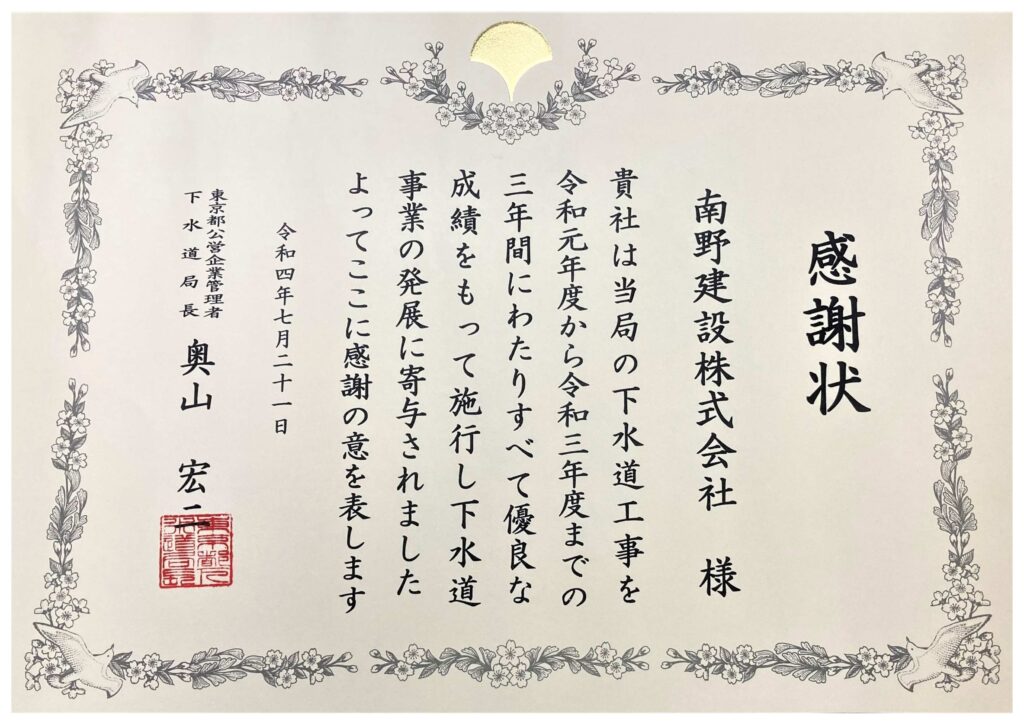 感謝状
南野建設株式会社 様
貴社は当局の下水道工事を
令和元年度から令和三年度までの
三年間にわたりすべて優良な
成績をもって施行し下水道
事業の発展に寄与されました
よってここに感謝の意を表します
令和四年七月二十一日
東京都公営企業管理者
下水道局長 奥山 宏二